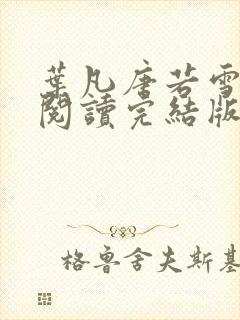 葉凡唐若雪
閱讀完結版
格魯舍夫斯基